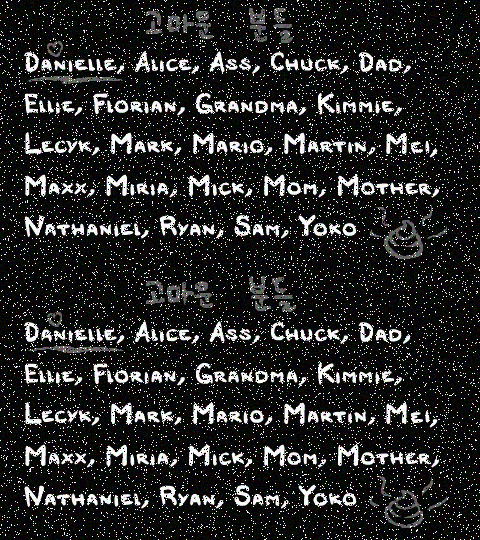 고마운 분들
Danielle, Alice, Ass, Chuck, Dad,
Ellie, Florian, Grandma, Kimmie,
Lecyk, Mark, Mario, Martin, Mei,
Maxx, Miria, Mick, Mom, Mother,
Nathaniel, Ryan, Sam, Yoko
고마운 분들
Danielle, Alice, Ass, Chuck, Dad,
Ellie, Florian, Grandma, Kimmie,
Lecyk, Mark, Mario, Martin, Mei,
Maxx, Miria, Mick, Mom, Mother,
Nathaniel, Ryan, Sam, Yoko